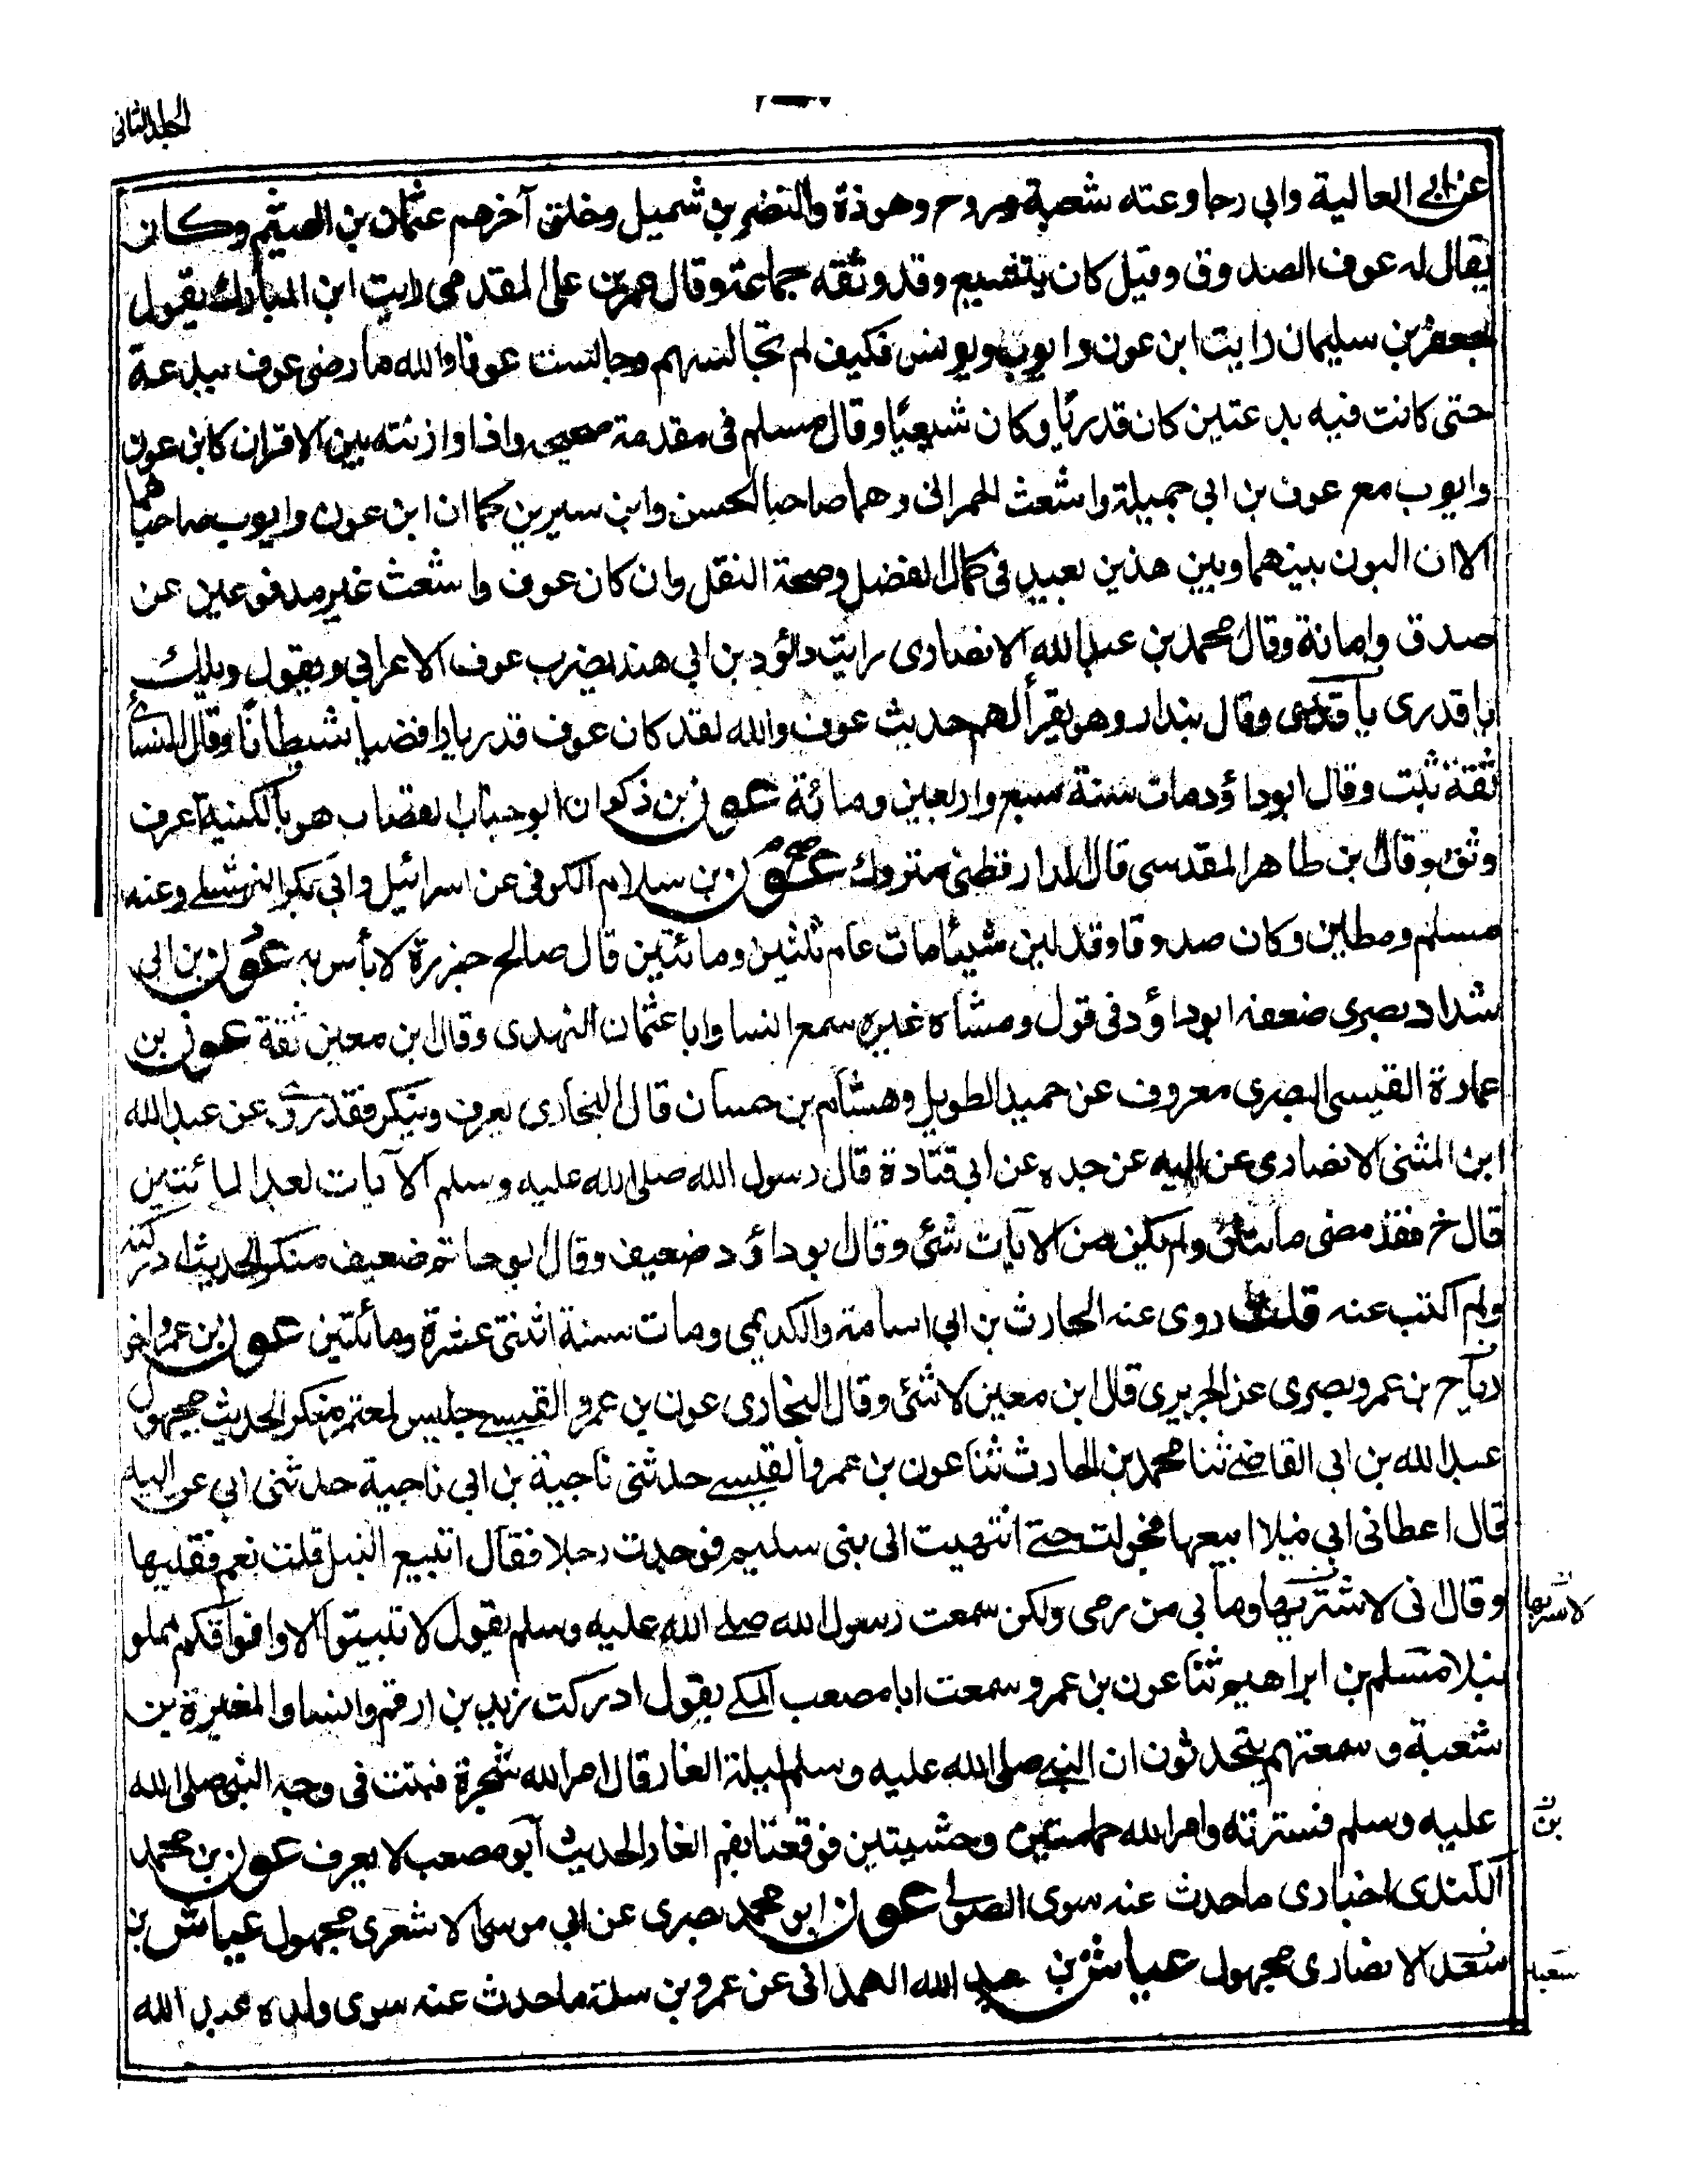 الجلد الثاني
عن ابي العالية وابي رجا وعنه شعبة وروح وهوذة والنضر بن شميل وخلق آخرهم عثمان بن الهيثم وكان
يقال له عوف الصدوق وقيل كان يتشيع وقد وثقه جماعة وقال عمر بن على المقدمى رايت ابن المبارك يقول
لجعفر بن سليمان رايت ابن عون وايوب ويونس فكيف لم تجالسهم وجالست عوفا والله ما رضى عوف ببدعة
حتى كانت فيه بدعتين كان قدريًا وكان شيعيًا وقال مسلم فى مقدمة صحيحه واذا وازنته بين الاقران كابن عون
وايوب مع عوف بن ابي جميلة واشعث الحمرانى وهما صاحبا الحسن وابن سيرين كما ان ابن عون وايوب صاحباهما
الا ان البون بينهما وبين هذين بعيد فى كمال الفضل وصحة النقل وان كان عوف واشعث غير مدفوعين عن
صدق وامانة وقال محمد بن عبدالله الانصارى رايت داؤد بن ابي هند يضرب عوف الاعرابي ويقول ويلك
يا قدرى يا قدرى وقال بندار وهو يقرأ لهم حديث عوف والله لقد كان عوف قدريا رافضيا شيطانًا وقال النسائى
ثقة ثبت وقال ابوداؤد مات سنة سبع واربعين ومائة عون بن ذكوان ابو جناب القصاب هو بالكنية اعرف
وثق وقال بن طاهر المقدسى قال الدارقطنى متروك عون بن سلام الكوفى عن اسرائيل وابي بكر النهشلى وعنه
مسلم ومطين وكان صدوقا وقد لين شيئا مات عام ثلثين ومائتين قال صالح جزرة لا بأس به عون بن ابي
شداد بصرى ضعفه ابوداؤد فى قول ومشاه غيره سمع انسا وابا عثمان النهدى وقال بن معين ثقة عون بن
عمارة القيسى البصرى معروف عن حميد الطويل وهشام بن حسان قال البخارى يعرف وينكر فقد روى عن عبدالله
ابن المثنى الانصارى عن ابيه عن جده عن ابي قتادة قال رسول الله صلى الله عليه وسلم الآيات بعد المائتين
قال خ فقد مضى مائتان ولم يكن من الآيات شئى وقال بوداؤد ضعيف وقال بوحاتم ضعيف منكر الحديث ادركته
ولم اكتب عنه قلت روى عنه الحارث بن ابي اسامة والكديمى ومات سنة اثنتى عشرة ومائتين عون بن عمرو اخو
رياح بن عمرو بصرى عن الجريرى قال ابن معين لا شئى وقال البخارى عون بن عمرو القيسى جليس لمعتمر منكر الحديث مجهول
عبدالله بن ابي القاضى ثنا محمد بن الحارث ثنا عون بن عمرو القيسى حدثنى ناجية بن ابي ناجية حدثنى ابي عن ابيه
قال اعطانى ابي نبلا ابيعها فخولت حتى انتهيت الى بنى سليم فوجدت رجلا فقال اتبيع النبل قلت نعم فقلبها
وقال انى لاشتريها وما بي من رمى ولكن سمعت رسول الله صلى الله عليه وسلم يقول لا تبيتوا الا وافواقكم مملو
لاشتريها
نبلا مسلم بن ابراهيم ثنا عون بن عمرو سمعت ابا مصعب المكى يقول ادركت زيد بن ارقم وانسا والمغيرة بن
شعبة وسمعتهم يتحدثون ان النبى صلى الله عليه وسلم ليلة الغار قال امر الله شجرة فنبتت فى وجه النبى صلى الله
عليه وسلم فسترته وامر الله حمامتين وحشيتين فوقعتا بفم الغار الحديث ابو مصعب لا يعرف عون بن محمد
بن
الكندى اخبارى ما حدث عنه سوى الصولى عون ابن محمد بصرى عن ابي موسى الاشعرى مجهول عياش بن
سعد الانصارى مجهول عياش بن عبد الله الهمدانى عن عمرو بن سلمة ما حدث عنه سوى ولده عبد الله
سعيد